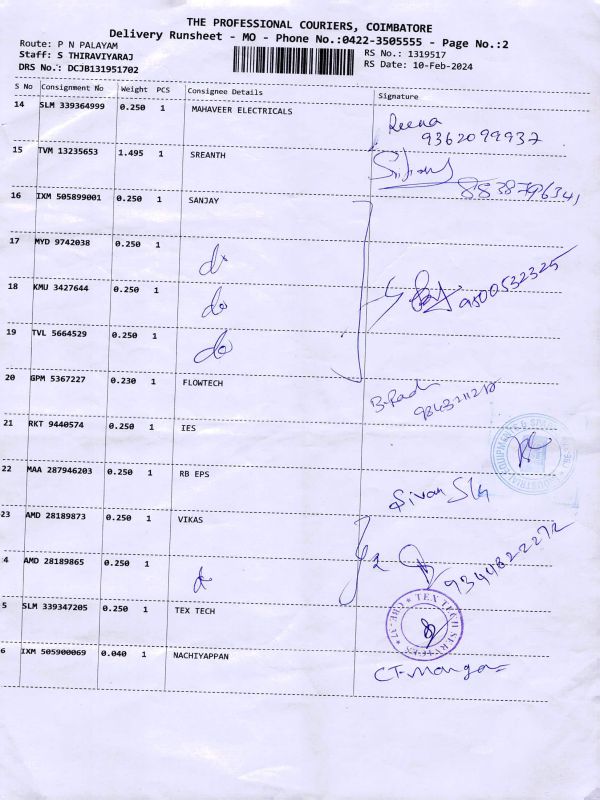 THE PROFESSIONAL COURIERS, COIMBATORE
Delivery Runsheet - MO - Phone No.:0422-3505555 - Page No.:2
Route: P N PALAYAM
Staff: S THIRAVIYARAJ
DRS No.: DCJB131951702
RS No.: 1319517
RS Date: 10-Feb-2024
S No Consignment No Weight PCS Consignee Details Signature
14 SLM 339364999 0.250 1 MAHAVEER ELECTRICALS
Reena
9362099937
15 TVM 13235653 1.495 1 SREANTH
8838796341
16 IXM 505899001 0.250 1 SANJAY
17 MYD 9742038 0.250 1 do
18 KMU 3427644 0.250 1 do
9500532325
19 TVL 5664529 0.250 1 do
20 GPM 5367227 0.230 1 FLOWTECH
21 RKT 9440574 0.250 1 IES
22 MAA 287946203 0.250 1 RB EPS
Sivan
23 AMD 28189873 0.250 1 VIKAS
4 AMD 28189865 0.250 1 do
9344822272
5 SLM 339347205 0.250 1 TEX TECH
TEX TECH SERVICES
6 IXM 505900069 0.040 1 NACHIYAPPAN